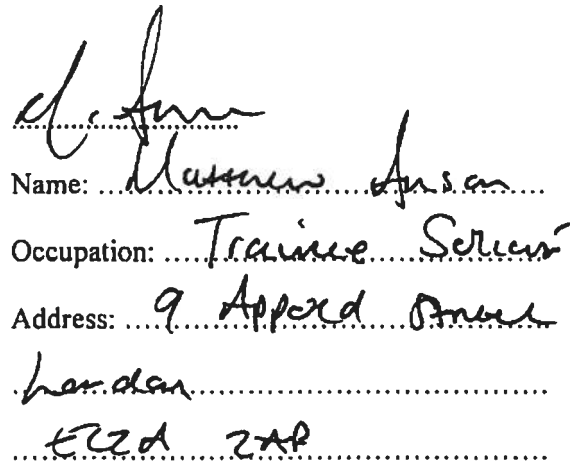 M. Anson
Name: Matthew Anson
Occupation: Trainee Solicitor
Address: 9 Appold Street
London
EC2A 2AP